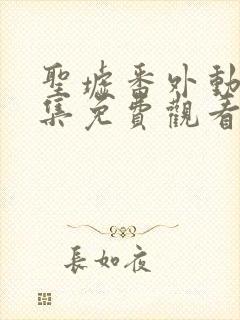 聖墟番外動
集免費觀看
長如夜